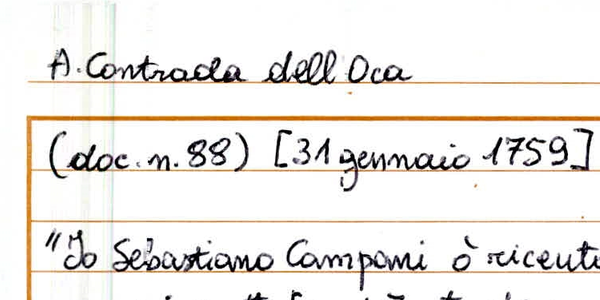 A. Contrada dell'Oca
(doc. n. 88) [31 gennaio 1759]
"Io Sebastiano Campani ò